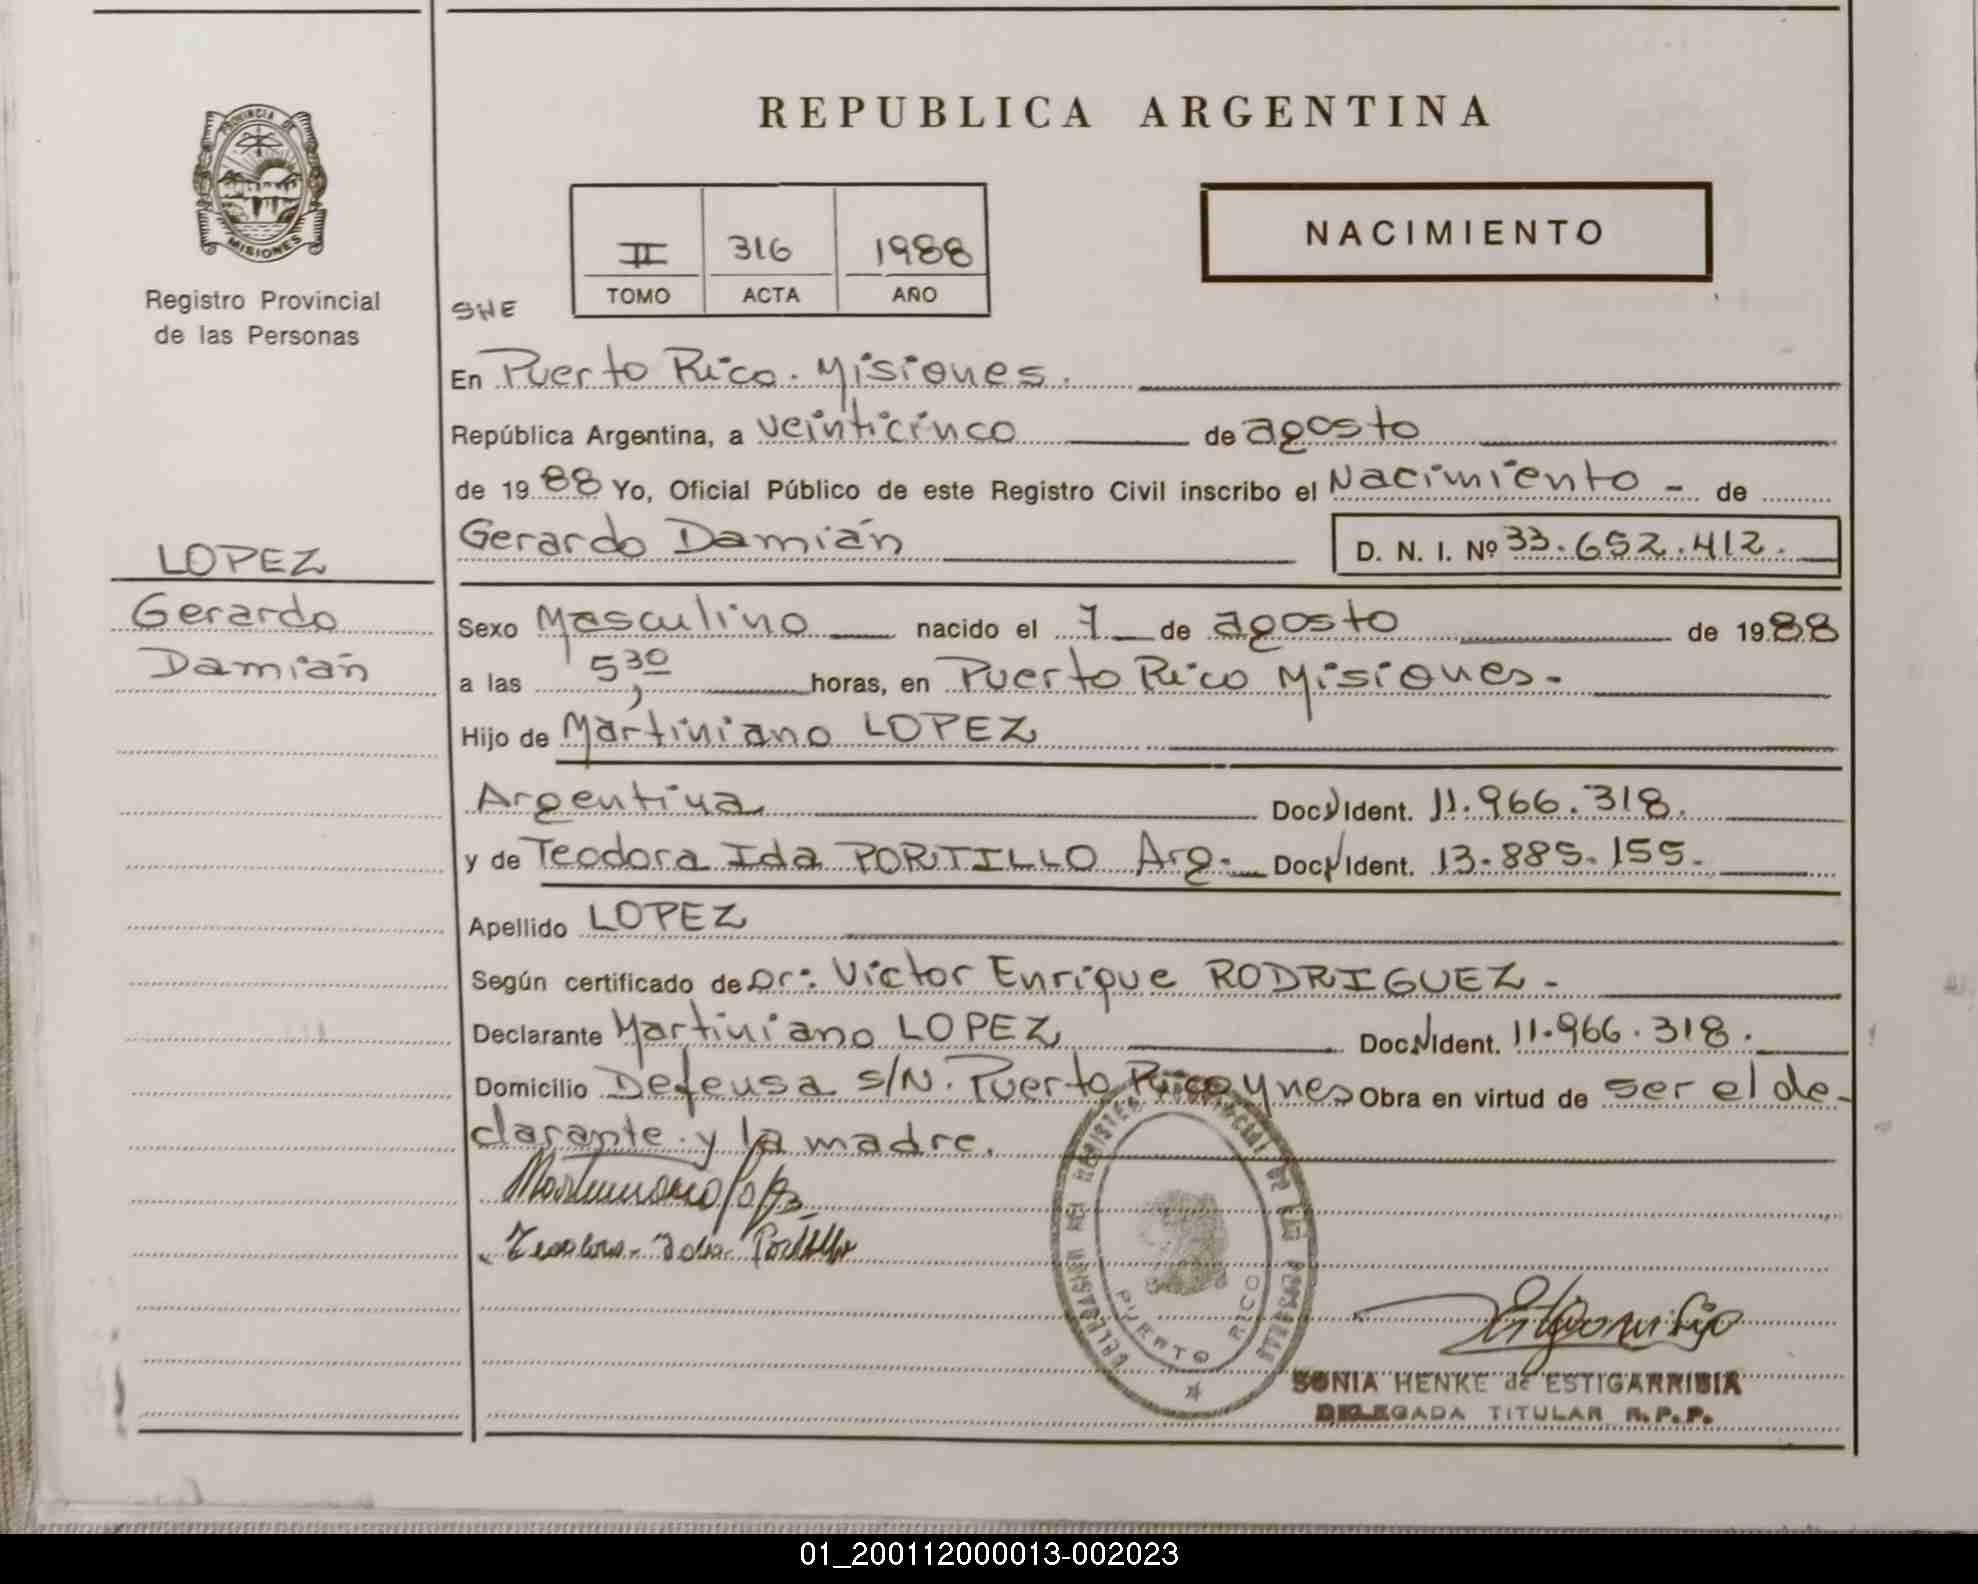 REPUBLICA ARGENTINA
PROVINCIA DE
MISIONES
Registro Provincial
de las Personas
II 316 1988
TOMO ACTA AÑO
NACIMIENTO
SHE
En Puerto Rico. Misiones.
República Argentina, a veinticinco de agosto
de 1988 Yo, Oficial Público de este Registro Civil inscribo el Nacimiento - de
Gerardo Damián
D. N. I. Nº 33.652.412.
LOPEZ
Gerardo
Damián
Sexo Masculino nacido el 7 de agosto de 1988
a las 5,30 horas, en Puerto Rico Misiones.
Hijo de Martiniano LOPEZ
Argentina Doc. Ident. 11.966.318.
y de Teodora Ida PORTILLO Arg. Doc. Ident. 13.885.155.
Apellido LOPEZ
Según certificado de Dr: Victor Enrique RODRIGUEZ -
Declarante Martiniano LOPEZ Doc. Ident. 11.966.318.
Domicilio Defensa s/N. Puerto Rico Mnes Obra en virtud de ser el de-
clarante y la madre.
Martiniano Lopez
Teodora Ida Portillo
DELEGACION DEL REGISTRO PROVINCIAL DE LAS PERSONAS
PUERTO RICO
SONIA HENKE de ESTIGARRIBIA
DELEGADA TITULAR R.P.P.
01_200112000013-002023